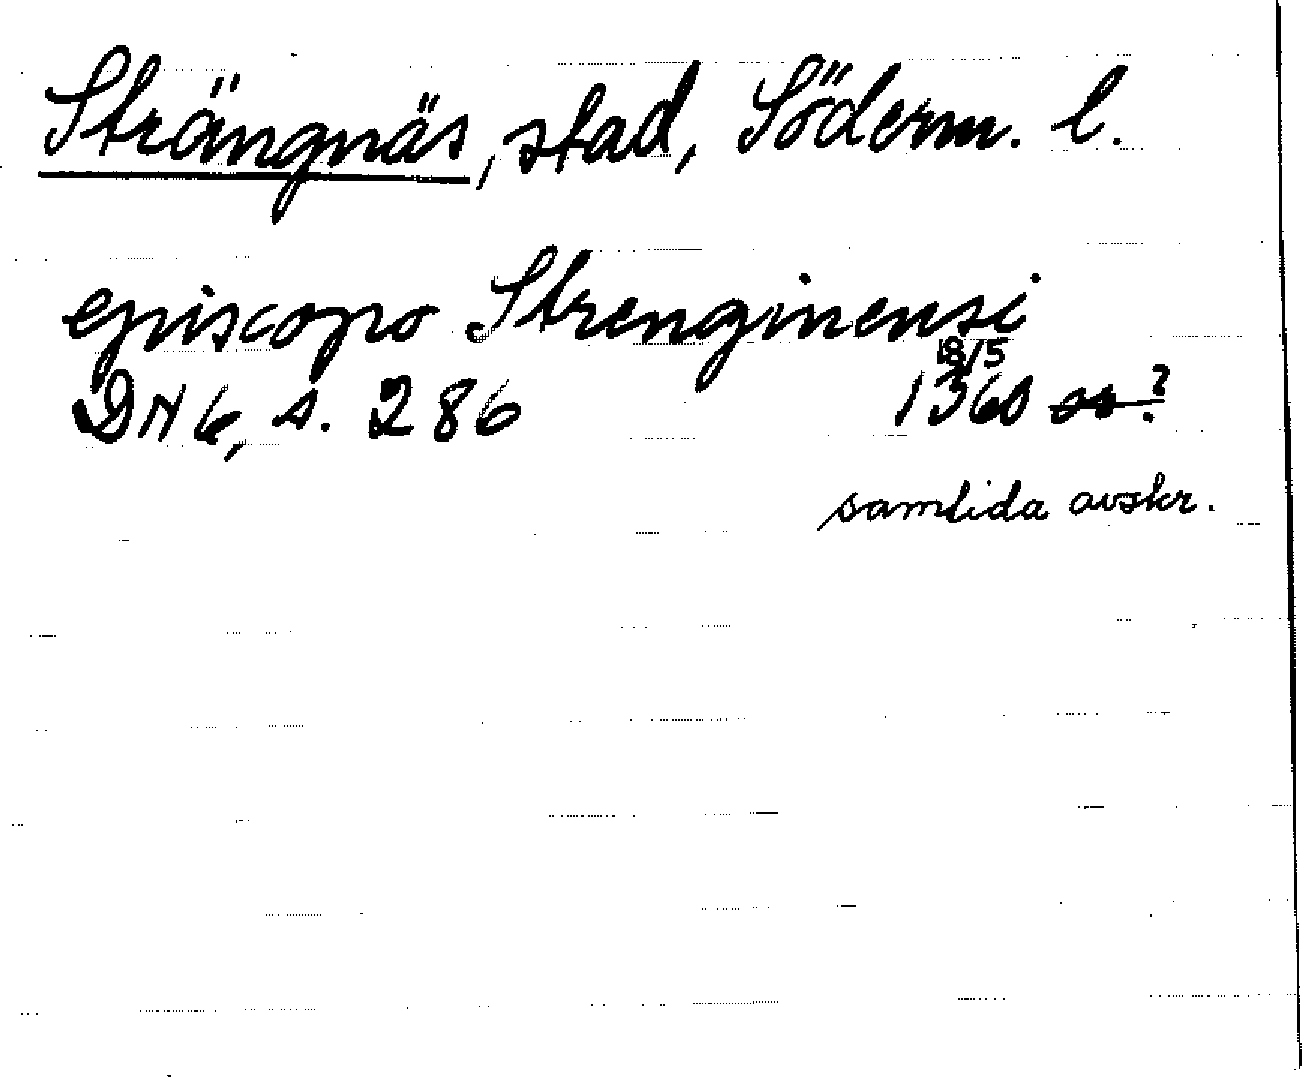 Strängnäs, stad, Söderm. l.
episcopo Strenginensi
18/5
DN 6, s. 286 1360 or?
samtida avskr.